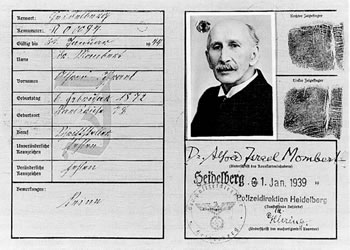 Kennort: Heidelberg
Kennummer: A 00094
Gültig bis 31. Januar 1944
Name Mombert
Vornamen
Alfred Israel
Geburtstag 6. Februar 1872
Geburtsort Karlsruhe
Beruf Schriftsteller
Unveränderliche
Kennzeichen fehlen
Veränderliche
Kennzeichen fehlen
Bemerkungen: Keine
Rechter Zeigefinger
Linker Zeigefinger
Dr. Alfred Israel Mombert
(Unterschrift des Kennkarteninhabers)
Heidelberg, 31. Jan. 1939
Polizeidirektion Heidelberg
(Ausstellende Behörde)
(Unterschrift des ausfertigenden Beamten)